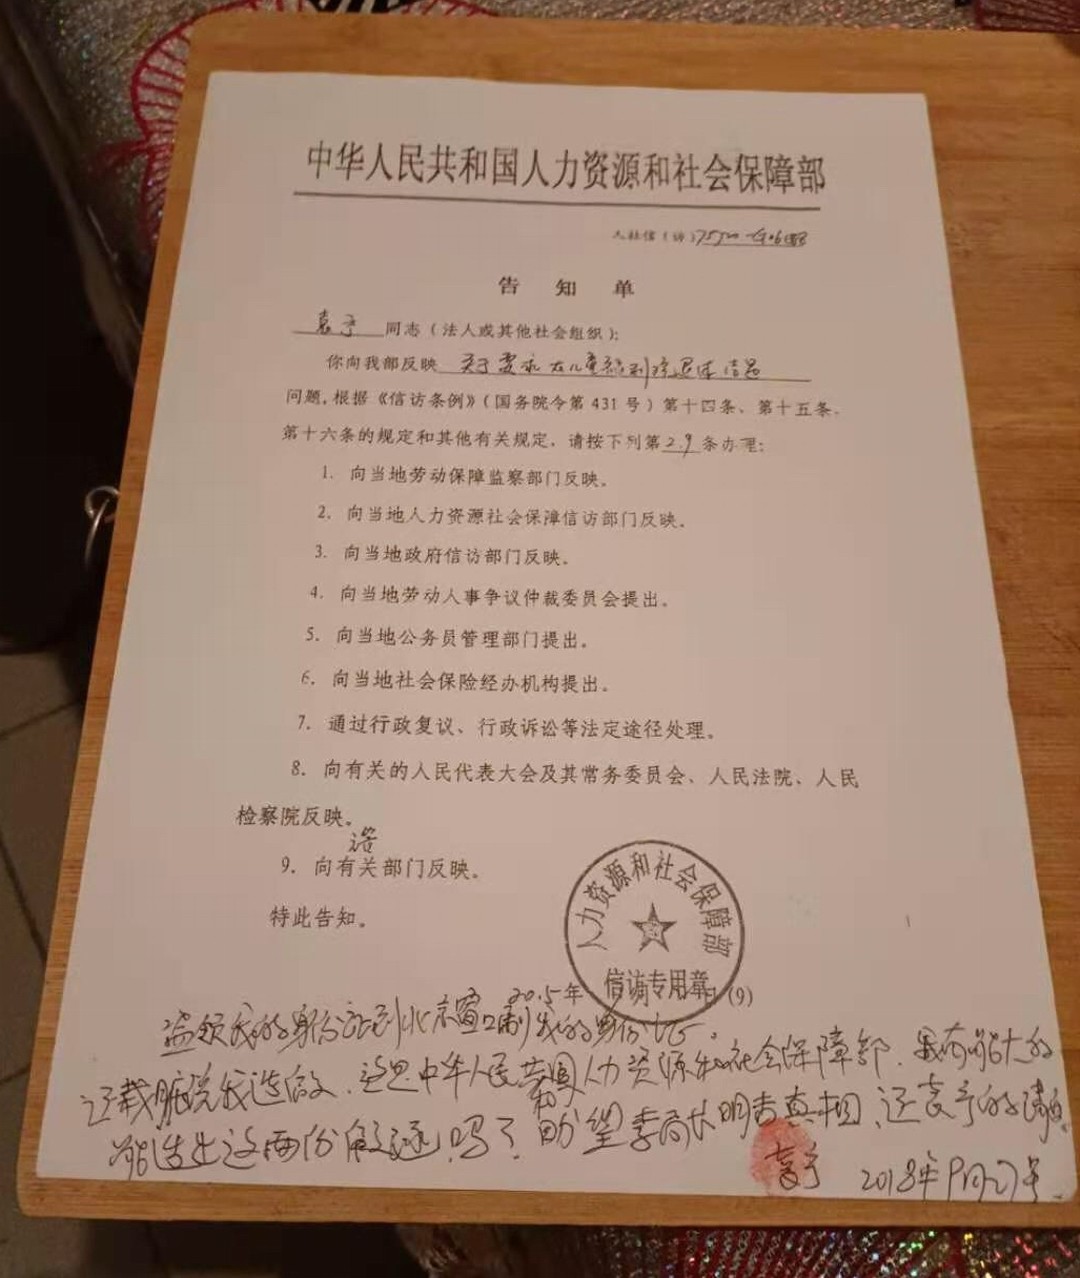 中华人民共和国人力资源和社会保障部
人社信(访)
告 知 单
袁予 同志(法人或其他社会组织):
你向我部反映 关于要求
问题,根据《信访条例》(国务院令第 431 号)第十四条、第十五条、
第十六条的规定和其他有关规定,请按下列第2.9条办理:
1. 向当地劳动保障监察部门反映。
2. 向当地人力资源社会保障信访部门反映。
3. 向当地政府信访部门反映。
4. 向当地劳动人事争议仲裁委员会提出。
5. 向当地公务员管理部门提出。
6. 向当地社会保险经办机构提出。
7. 通过行政复议、行政诉讼等法定途径处理。
8. 向有关的人民代表大会及其常务委员会、人民法院、人民
检察院反映。
9. 向有关部门反映。
特此告知。
人力资源和社会保障部
信访专用章
2015年 (9)
盗领我的身份证到北京 制我的身份证。
还栽脏说我造假、这是中华人民共和国人力资源和社会保障部、
能造出这两份 吗?盼望李局长明查真相、还袁予的清白。
袁予 2018年9月27号